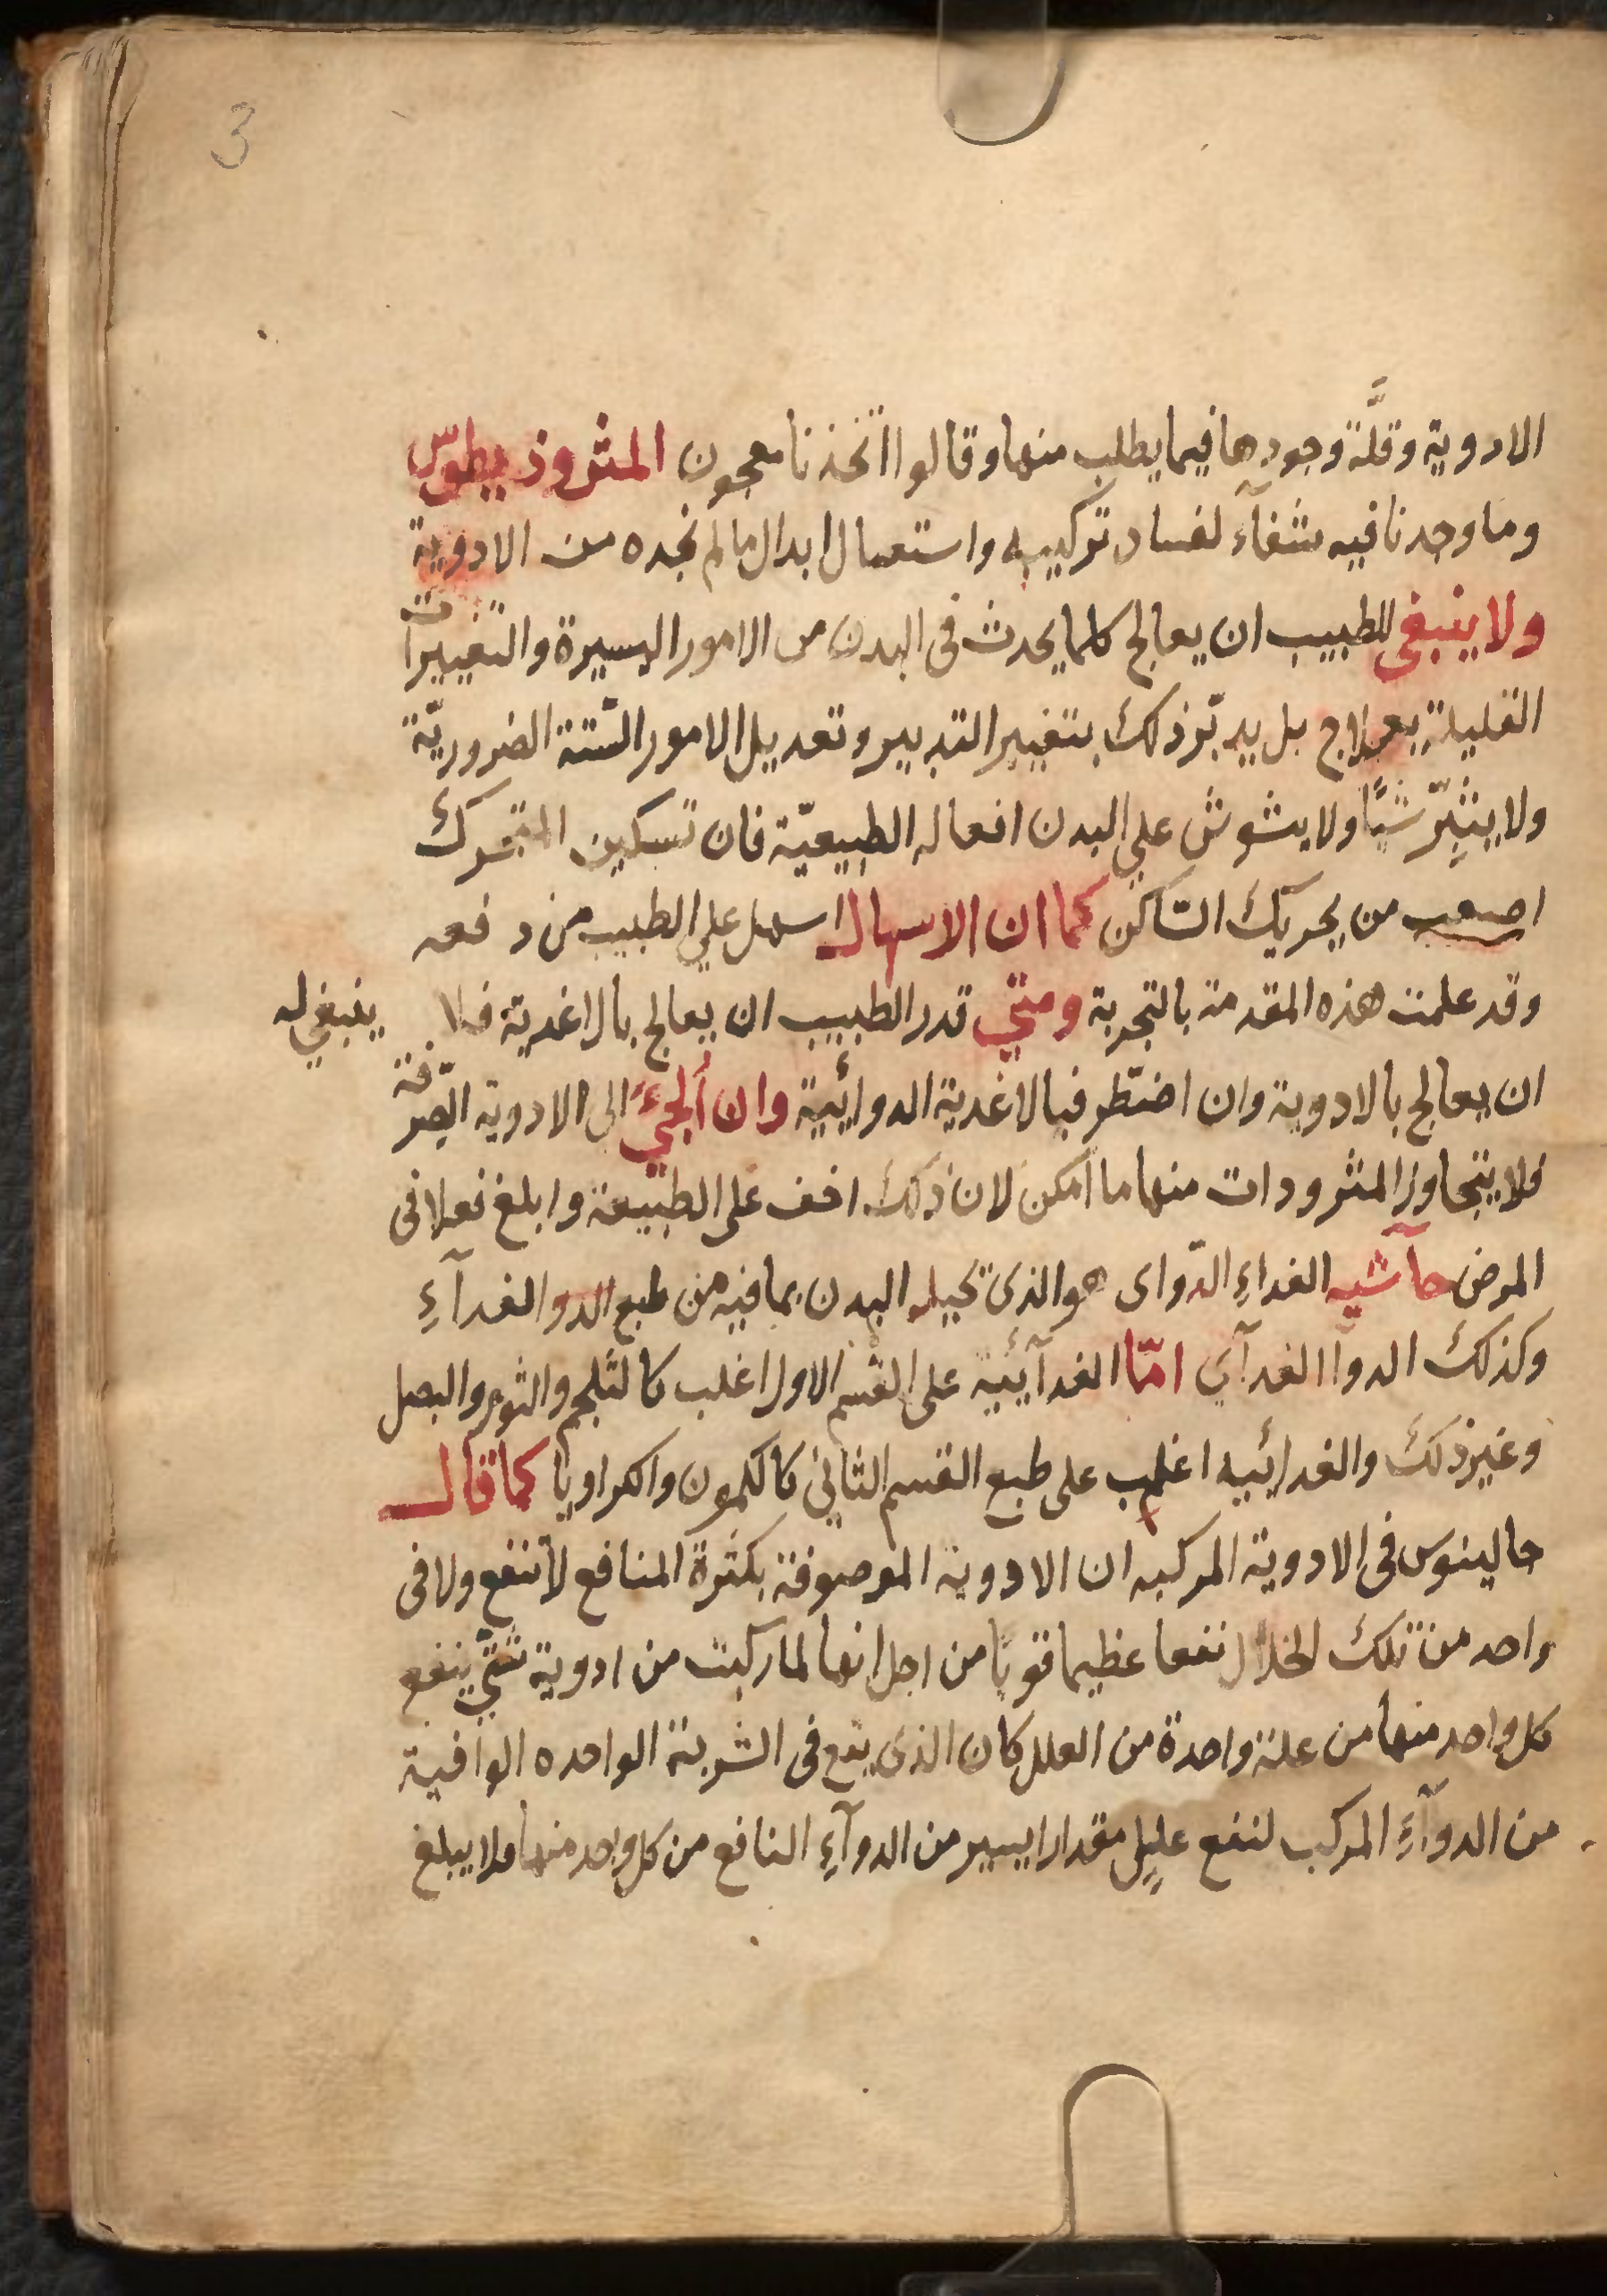 3
الادوية وقلَّة وجودها فيما يطلب منها وقالوا اتخذنا معجون المثروذيطوس
وما وجدنا فيه شفآء لفساد تركيبه واستعمال ابدال مالم نجده من الادوية
ولا ينبغى للطبيب ان يعالج كلما يحدث فى البدن من الامور اليسيرة والتغييرات
القليلة بعلاج بل يدبّر ذلك بتغيير التدبير وتعديل الامور الستة الضروريّة
ولا يثيّر شيًا ولا يشوش على البدن افعاله الطبيعيّة فان تسكين المتحرك
اصعب من تحريك الساكن كما ان الاسهال اسهل على الطبيب من دفعه
وقد علمت هذه المقدمة بالتجربة ومتي قدر الطبيب ان يعالج بالاغدية فلا ينبغي له
ان يعالج بالادوية وان اضتطر فبالاغدية الدوائية وان أُلجيَ الى الادوية الصِرفة
فلا يتجاوز المثرودات منها ما امكن لان ذلك اخف على الطبيعة وابلغ فعلا فى
المرض حآشيه الغداءِ الدّواى هو الذى تحيله البدن بما فيه من طبع الدوا الغدآءِ
وكذلك الدوآا الغدآي امّا الغدآئية على القسم الاول اغلب كالثلجم والثوم والبصل
وغير ذلك والغدائيه اغلب على طبع القسم الثاني كالكمون والكراويا كما قال
جالينوس فى الادوية المركبه ان الادوية الموصوفة بكثرة المنافع لا تنفع ولا فى
واحد من تلك الخلال نفعا عظيما قويًا من اجل انها لما ركبت من ادوية شتّي ينفع
كل واحد منها من علة واحدة من العلل كان الذى يقع فى الشربة الواحده الوافية
من الدوآءِ المركب لنفع عليل مقدارا يسير من الدوآءِ النافع من كل واحد منها فلا يبلغ